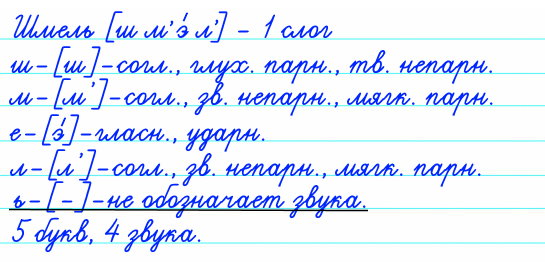 Шмель [ш м’ э́ л’] – 1 слог
ш – [ш] – согл., глух. парн., тв. непарн.
м – [м’] – согл., зв. непарн., мягк. парн.
е – [э́] – гласн., ударн.
л – [л’] – согл., зв. непарн., мягк. парн.
ь – [ – ] – не обозначает звука.
5 букв, 4 звука.